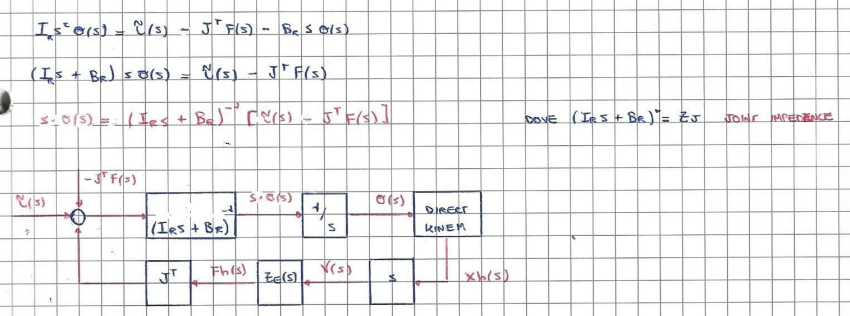 I_R s² θ(s) = τ(s) - Jᵀ F(s) - B_R s θ(s)
(I_R s + B_R) s θ(s) = τ(s) - Jᵀ F(s)
s·θ(s) = (I_R s + B_R)⁻¹ [τ(s) - Jᵀ F(s)] DOVE (I_R s + B_R) = ZJ JOINT IMPEDENCE
-Jᵀ F(s)
τ(s) (I_R s + B_R)⁻¹ s·θ(s) 1/s θ(s) DIRECT KINEM
Jᵀ Fh(s) Z_E(s) V(s) s xh(s)